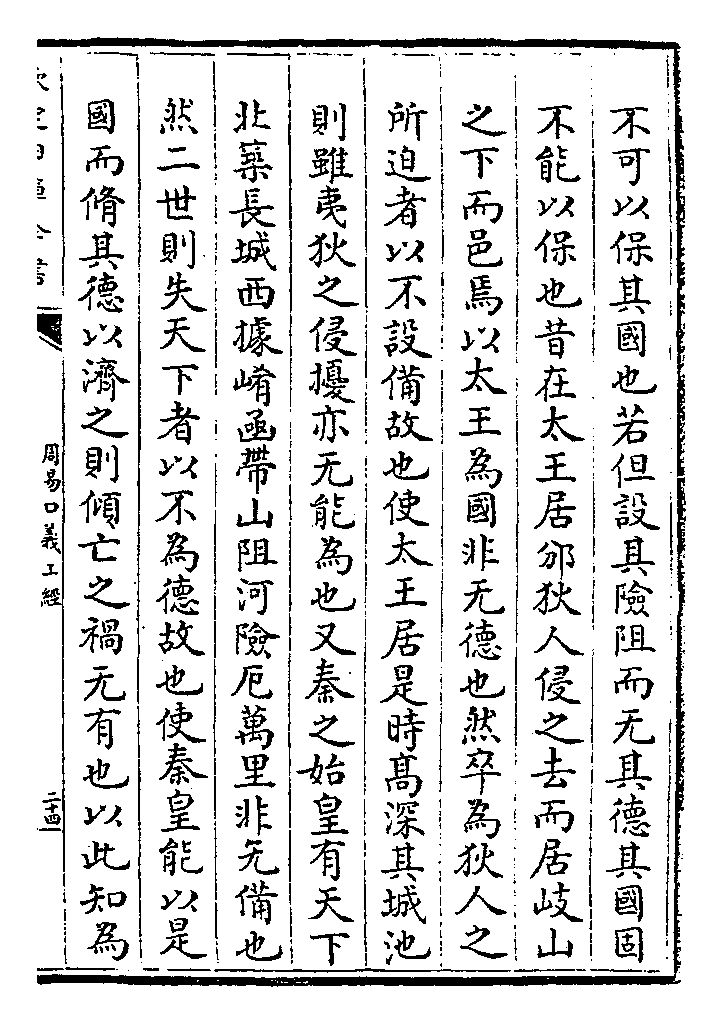 不可以保其國也若但設其險阻而无其德其國固
不能以保也昔在太王居邠狄人侵之去而居岐山
之下而邑焉以太王為國非无德也然卒為狄人之
所迫者以不設備故也使太王居是時髙深其城池
則雖夷狄之侵擾亦无能為也又秦之始皇有天下
北築長城西據崤函帶山阻河險厄萬里非无備也
然二世則失天下者以不為德故也使秦皇能以是
國而脩其德以濟之則傾亡之禍无有也以此知為
周易口義上經
二十四